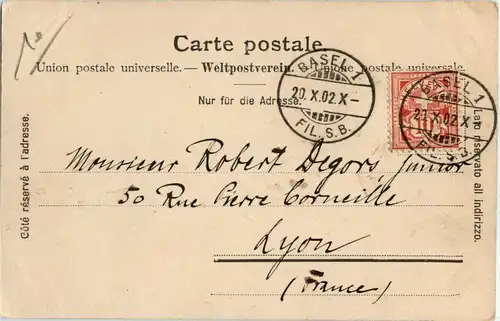 Carte postale.
Union postale universelle. — Weltpostverein. — Unione postale universale.
Nur für die Adresse.
BASEL 1
20. X. 02. X –
FIL. S. B.
BASEL 1
20. X. 02. X –
FIL. S. B.
Côté réservé à l'adresse.
Lato riservato all indirizzo.
Monsieur Robert Degors, junior
50 Rue Pierre Corneille
Lyon
(France)